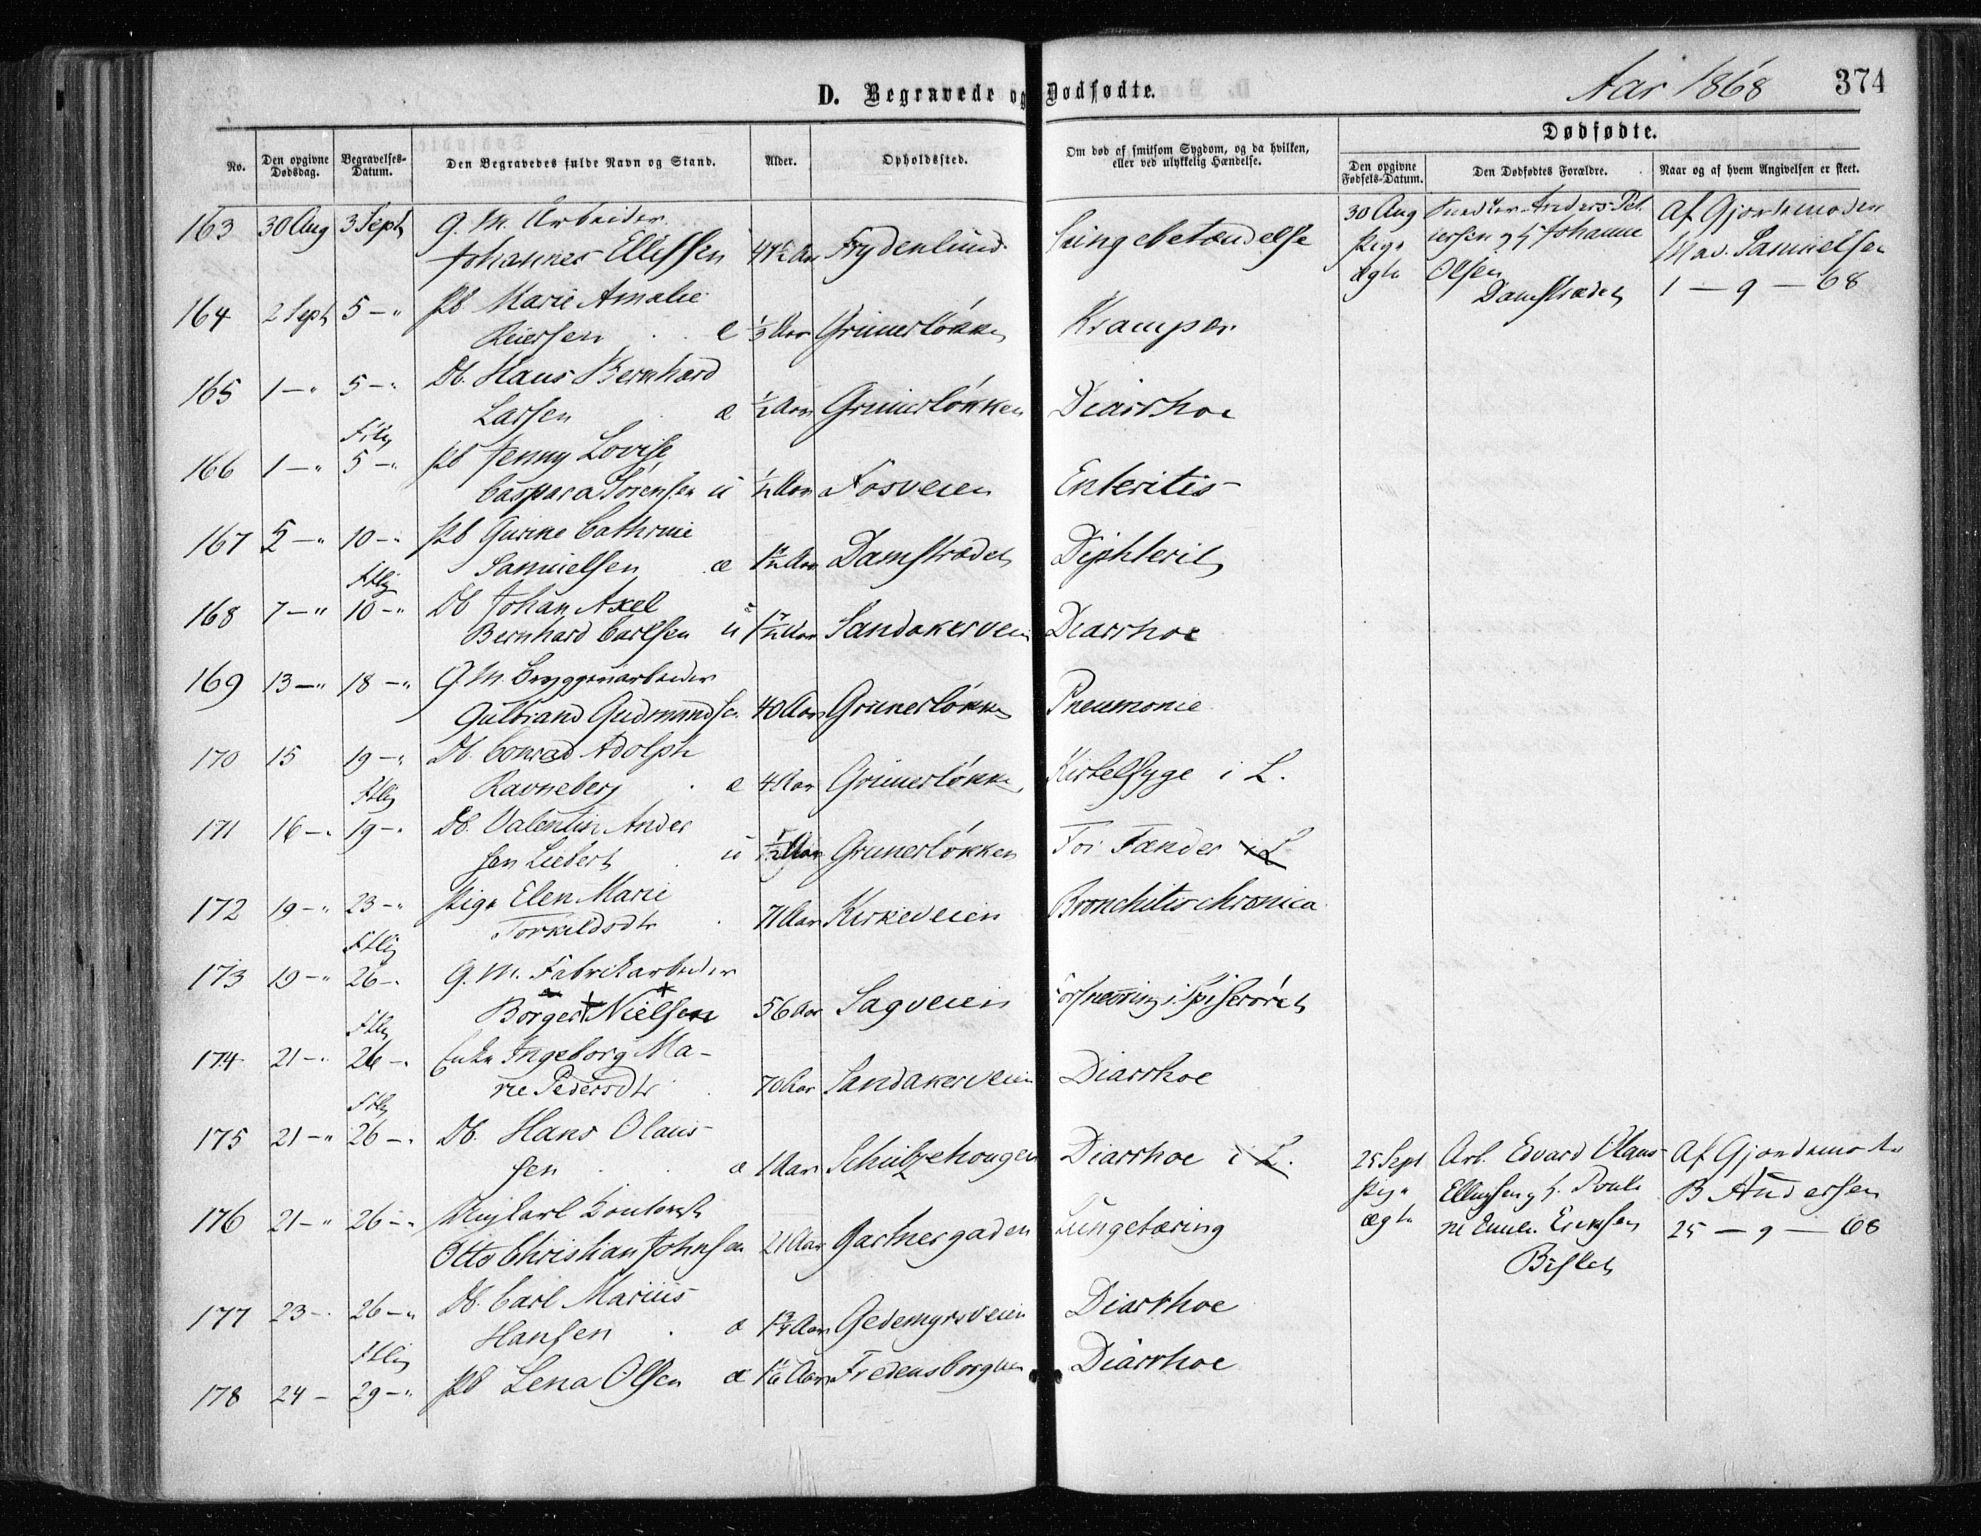 Aar 1868
374
D. Begravede og Dødfødte.
Dødfødte.
No.
Den opgivne Dødsdag.
Begravelses-Datum.
Den Begravedes fulde Navn og Stand.
Alder.
Opholdssted.
Om død af smitsom Sygdom, og da hvilken, eller ved ulykkelig Hændelse.
Den opgivne Fødsels-Datum.
Den Dødfødtes Forældre.
Naar og af hvem Angivelsen er skeet.
163 30 Aug 3 Sept G. M. Arbeider
Johannes Ellefsen Aar Frydenlund Lungebetændelse
30 Aug Anders Pet
ersen og H Johanne
Olsen
Damstrædet
Pige
ægte
Af Gjordemoder
Mad. Samuelsen
1 – 9 – 68
164 2 Sept 5 – " Pb Marie Amalie
Reiersen . . e 1/3 Aar Grünerløkken Kramper
165 1 – " 5 – " Db. Hans Bernhard
Larsen . æ 1/2 Aar Grünerløkken Diarrhoe
Ftlig
166 1 – " 5 – " Pb Jenny Lovise
Caspara Sørensen u Aar Fosveien Enteritis
167 5 – " 10 – " Pb Gurine Cathrine
Samuelsen æ Aar Damstrædet Diphterit
Ftlig
168 7 – " 10 – " Db Johan Axel
Bernhard Carlsen u Aar Sandakerveien Diarrhoe
169 13 – " 18 – " G. M. Bryggeriarbeider
Gulbrand Gudmundsen 40 Aar Grünerløkken Pneumonie
170 15 19 – " Db. Conrad Adolph
Ravneberg . e 4 Aar Grünerløkken Kirtelsyge i L.
Ftlig
171 16 – " 19 – " Db. Valentin Ander
sen Liebert . u Aar Grünerløkken For Tænder i L
172 19 – " 23 – " Pige Elen Marie
Torkildsdtr . 71 Aar Kirkeveien Bronchitis chronica
Ftlig
173 19 – " 26 – " G. M. Fabrikarbeider
Børger Nielsen 56 Aar Sagveien Forsnevring i Spiserøret
Ftlig
174 21 – " 26 – " Enke Ingeborg Ma-
rie Pedersdtr . 70 Aar Sandakerveien Diarrhoe
Ftlig
175 21 – " 26 – " Db. Hans Olaus-
sen . . æ 1 Aar Schultzehougen Diarrhoe i L.
25 Sept
Pige
ægte
Arb. Edvard Olaus
Ellingsen og H.
Eriksen
Bislet
Af Gjordemoder
B Andersen
25 – 9 – 68
176 21 – " 26 – " Ungkarl Kontorist
Otto Christian Johnsen 21 Aar Gartnergaden Lungetæring
177 23 – " 26 – " Db. Carl Marius
Hansen . æ 1 3/4 Aar Gedemyrsveien Diarrhoe
Ftlig
178 24 – 29 – " Pb Lena Olsen æ Aar Fredensborgveien Diarrhoe